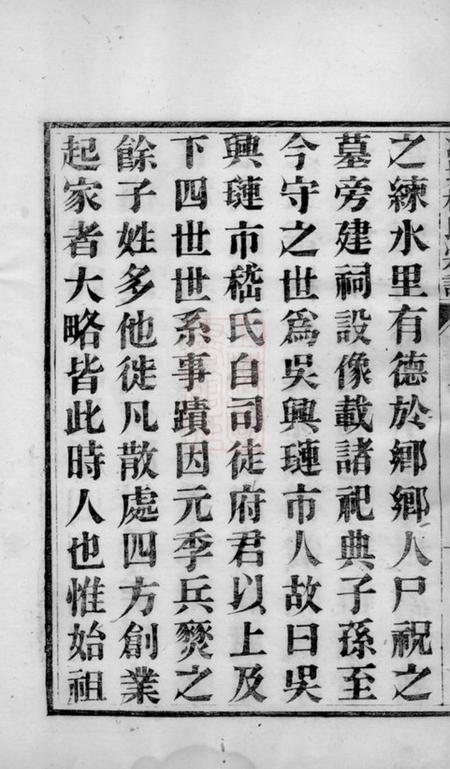 之練水里有德於鄉鄉人尸祝之
墓旁建祠設像載諸祀典子孫至
今守之世爲吳興璉市人故曰吳
興璉市嵇氏自司徒府君以上及
下四世世系事蹟因元季兵燹之
餘子姓多他徙凡散處四方創業
起家者大略皆此時人也惟始祖